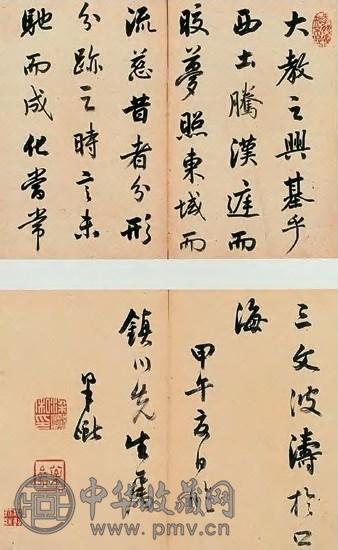 大教之興基乎
西土騰漢庭而
皎夢照東域而
流慈昔者分形
分跡之時言未
馳而成化當常
三文波濤於口
海
甲午夏日臨
鎮川先生屬
中华收藏网
www.pmv.cn